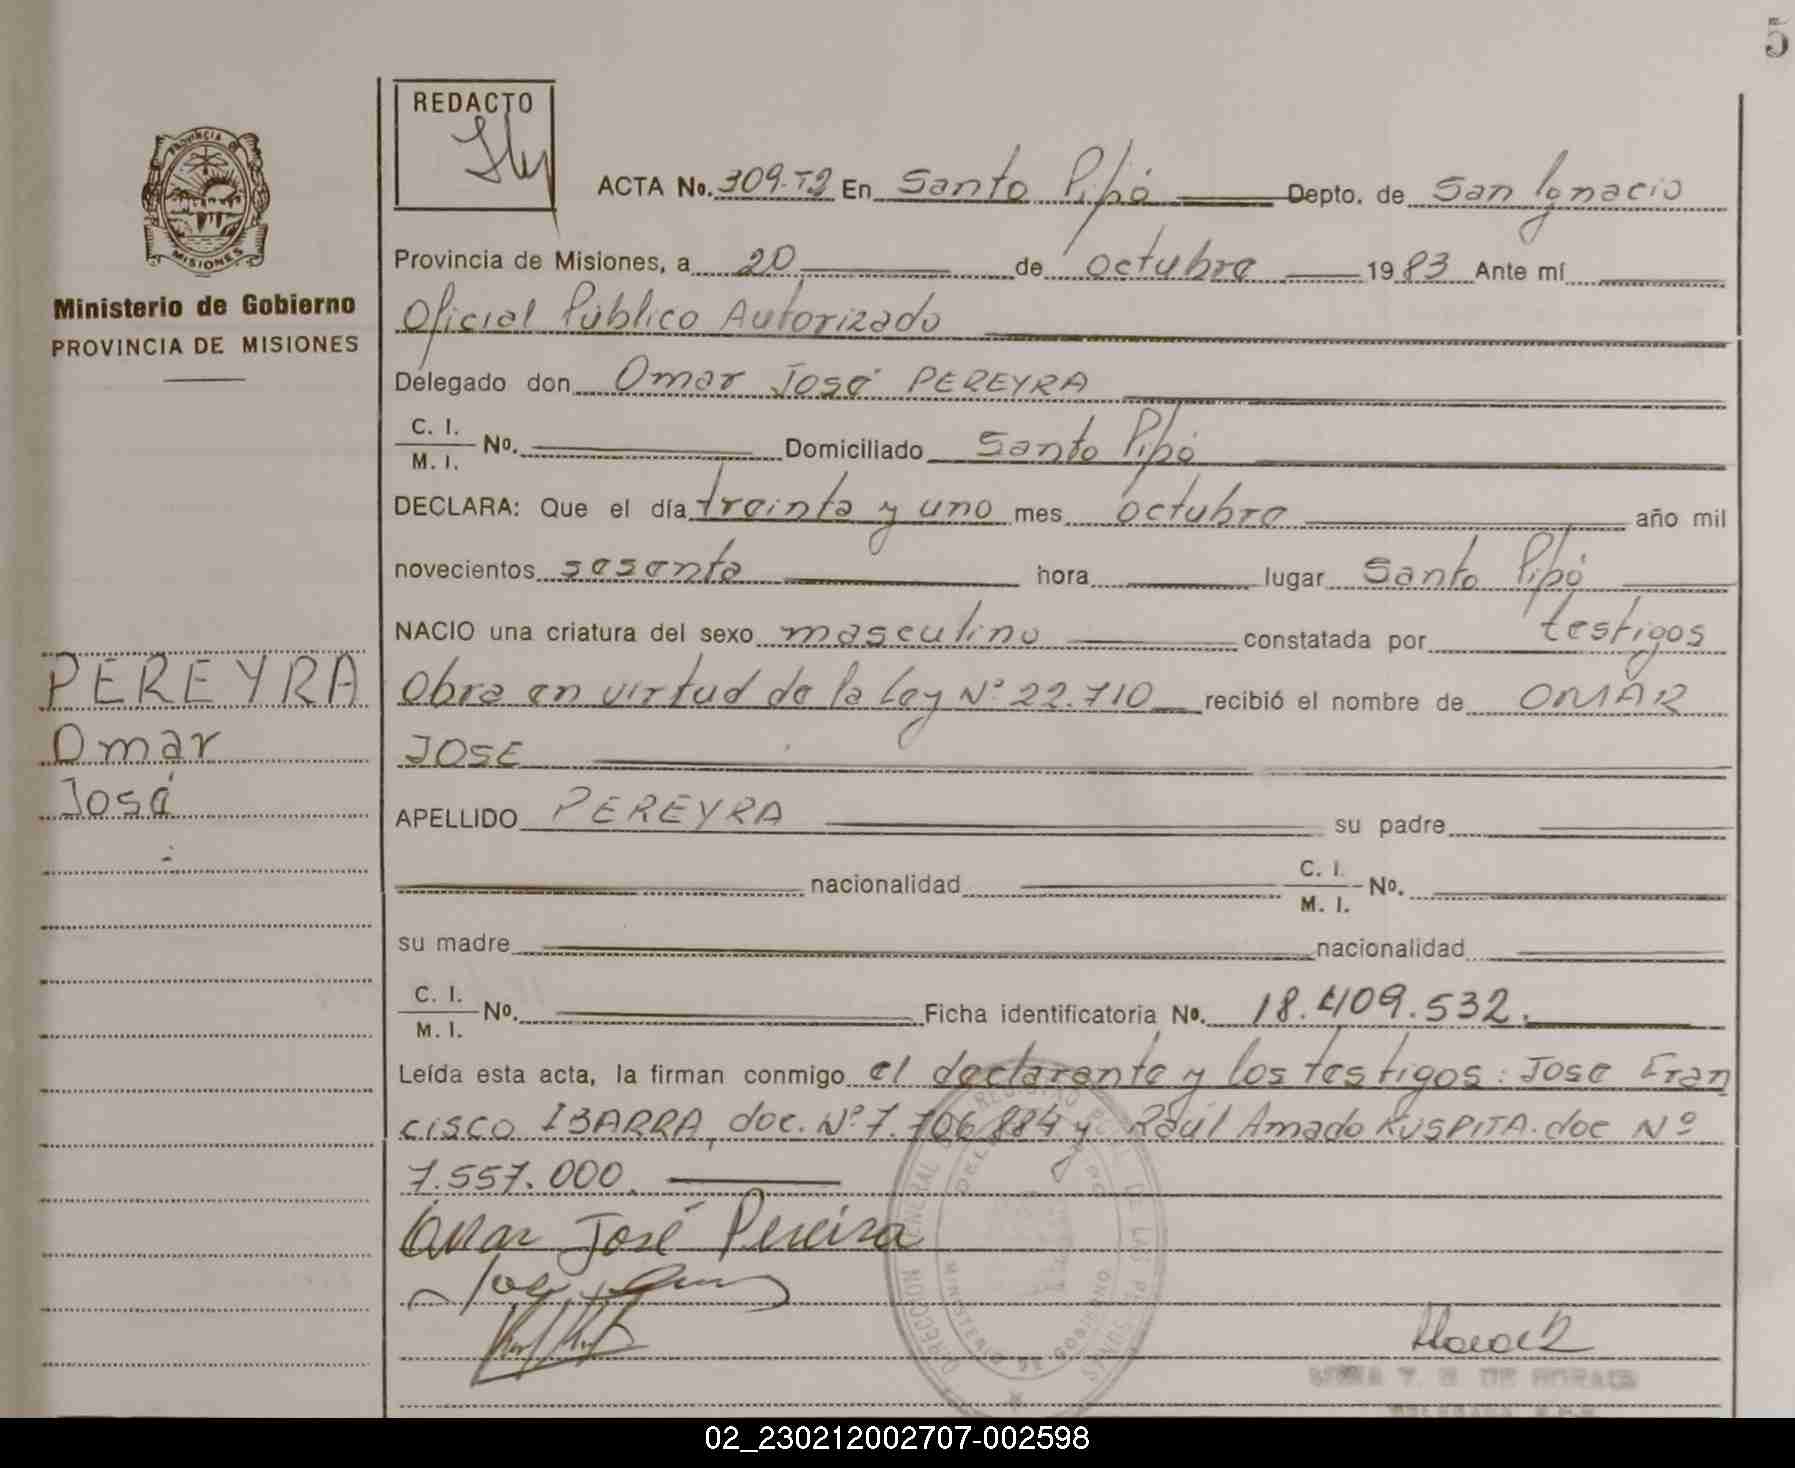 5
REDACTO
PROVINCIA DE
MISIONES
Ministerio de Gobierno
PROVINCIA DE MISIONES
PEREYRA
Omar
José
ACTA No. 309-T2 En Santo Pipó Depto. de San Ignacio
Provincia de Misiones, a 20 de octubre 1983 Ante mí
Oficial Público Autorizado
Delegado don Omar José PEREYRA
C. I.
M. I. No. Domiciliado Santo Pipó
DECLARA: Que el día treinta y uno mes octubre año mil
novecientos sesenta hora lugar Santo Pipó
NACIO una criatura del sexo masculino constatada por testigos
Obra en virtud de la Ley Nº 22.710 recibió el nombre de OMAR
JOSE
APELLIDO PEREYRA su padre
nacionalidad C. I.
M. I. No.
su madre nacionalidad
C. I.
M. I. No. Ficha identificatoria No. 18.409.532.
Leída esta acta, la firman conmigo el declarante y los testigos: Jose Fran
cisco IBARRA, doc. Nº 7.706.884 y Raúl Amado KUSPITA. doc Nº
7.557.000.
Omar José Pereira
DIRECCION GENERAL DE REGISTRO DE LAS PERSONAS
MINISTERIO DE GOBIERNO
DE MORAIS
02_230212002707-002598